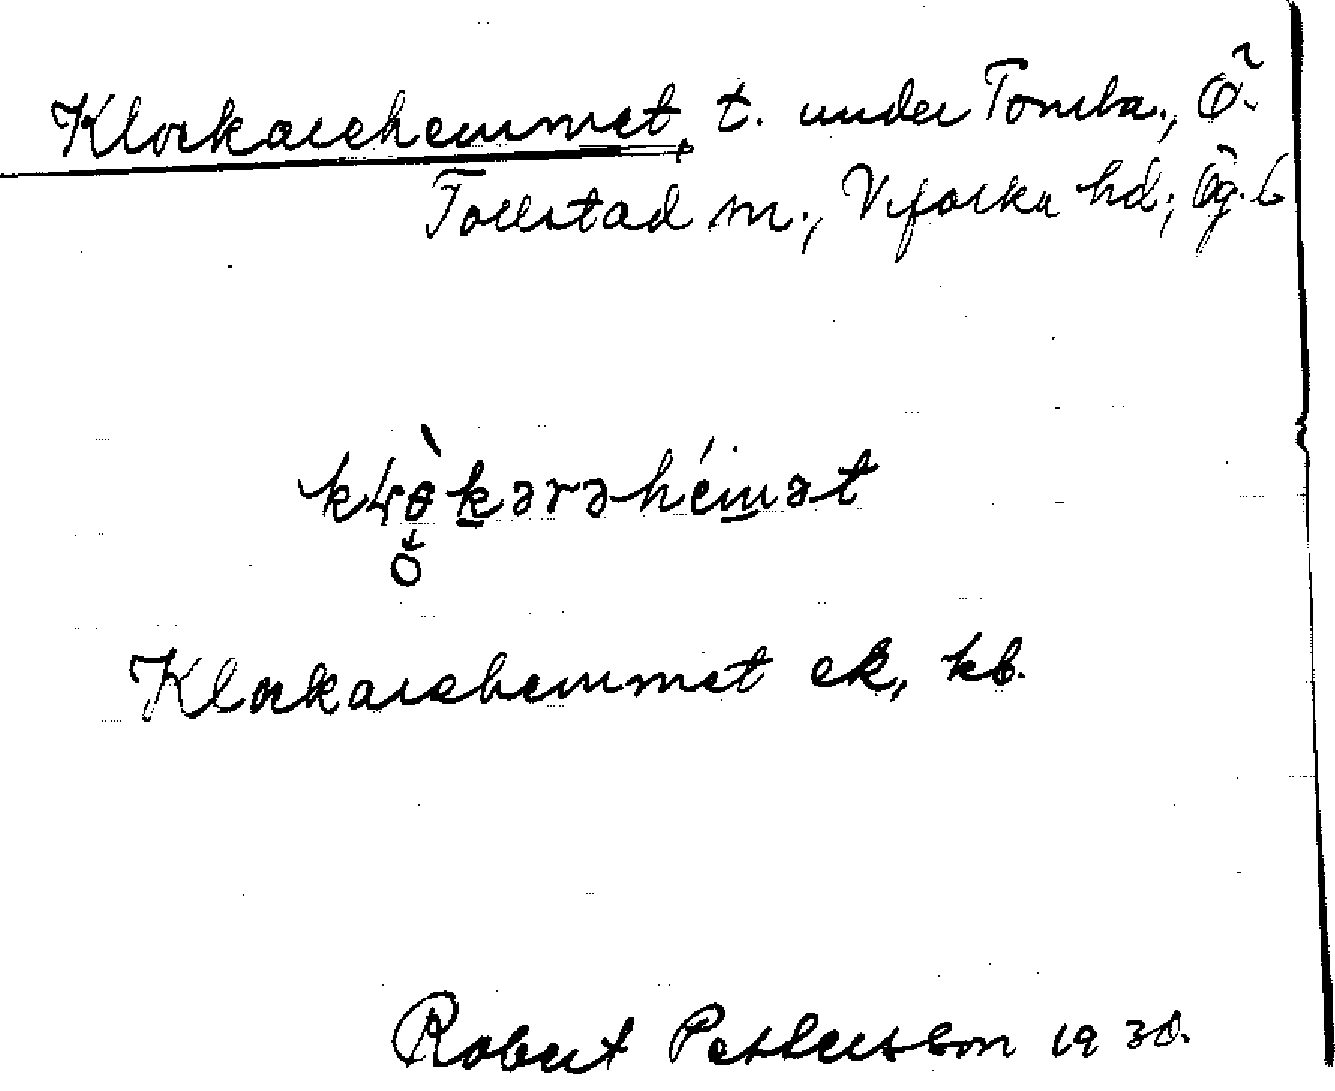 Klockarehemmet, t. under Tomba, Ö.
Tollstad sn., Vifolka hd; Ög. l
kɫɵ̀kərəhémət
o
Klockarehemmet ek, kb.
Robert Pettersson 1930.